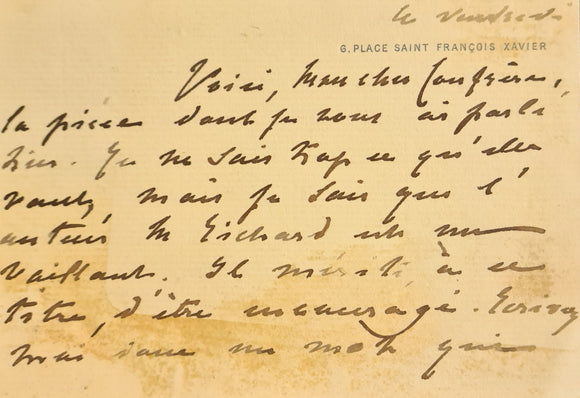 le vendredi
6, PLACE SAINT FRANÇOIS XAVIER
Voici, mon cher Confrère,
la pièce dont je vous ai parlé
hier. Je ne sais trop ce qu'elle
vaut, mais je sais que l'
auteur M Richard est un
vaillant. Il mérite, à ce
titre, d'être encouragé. Ecrivez
moi donc un mot que